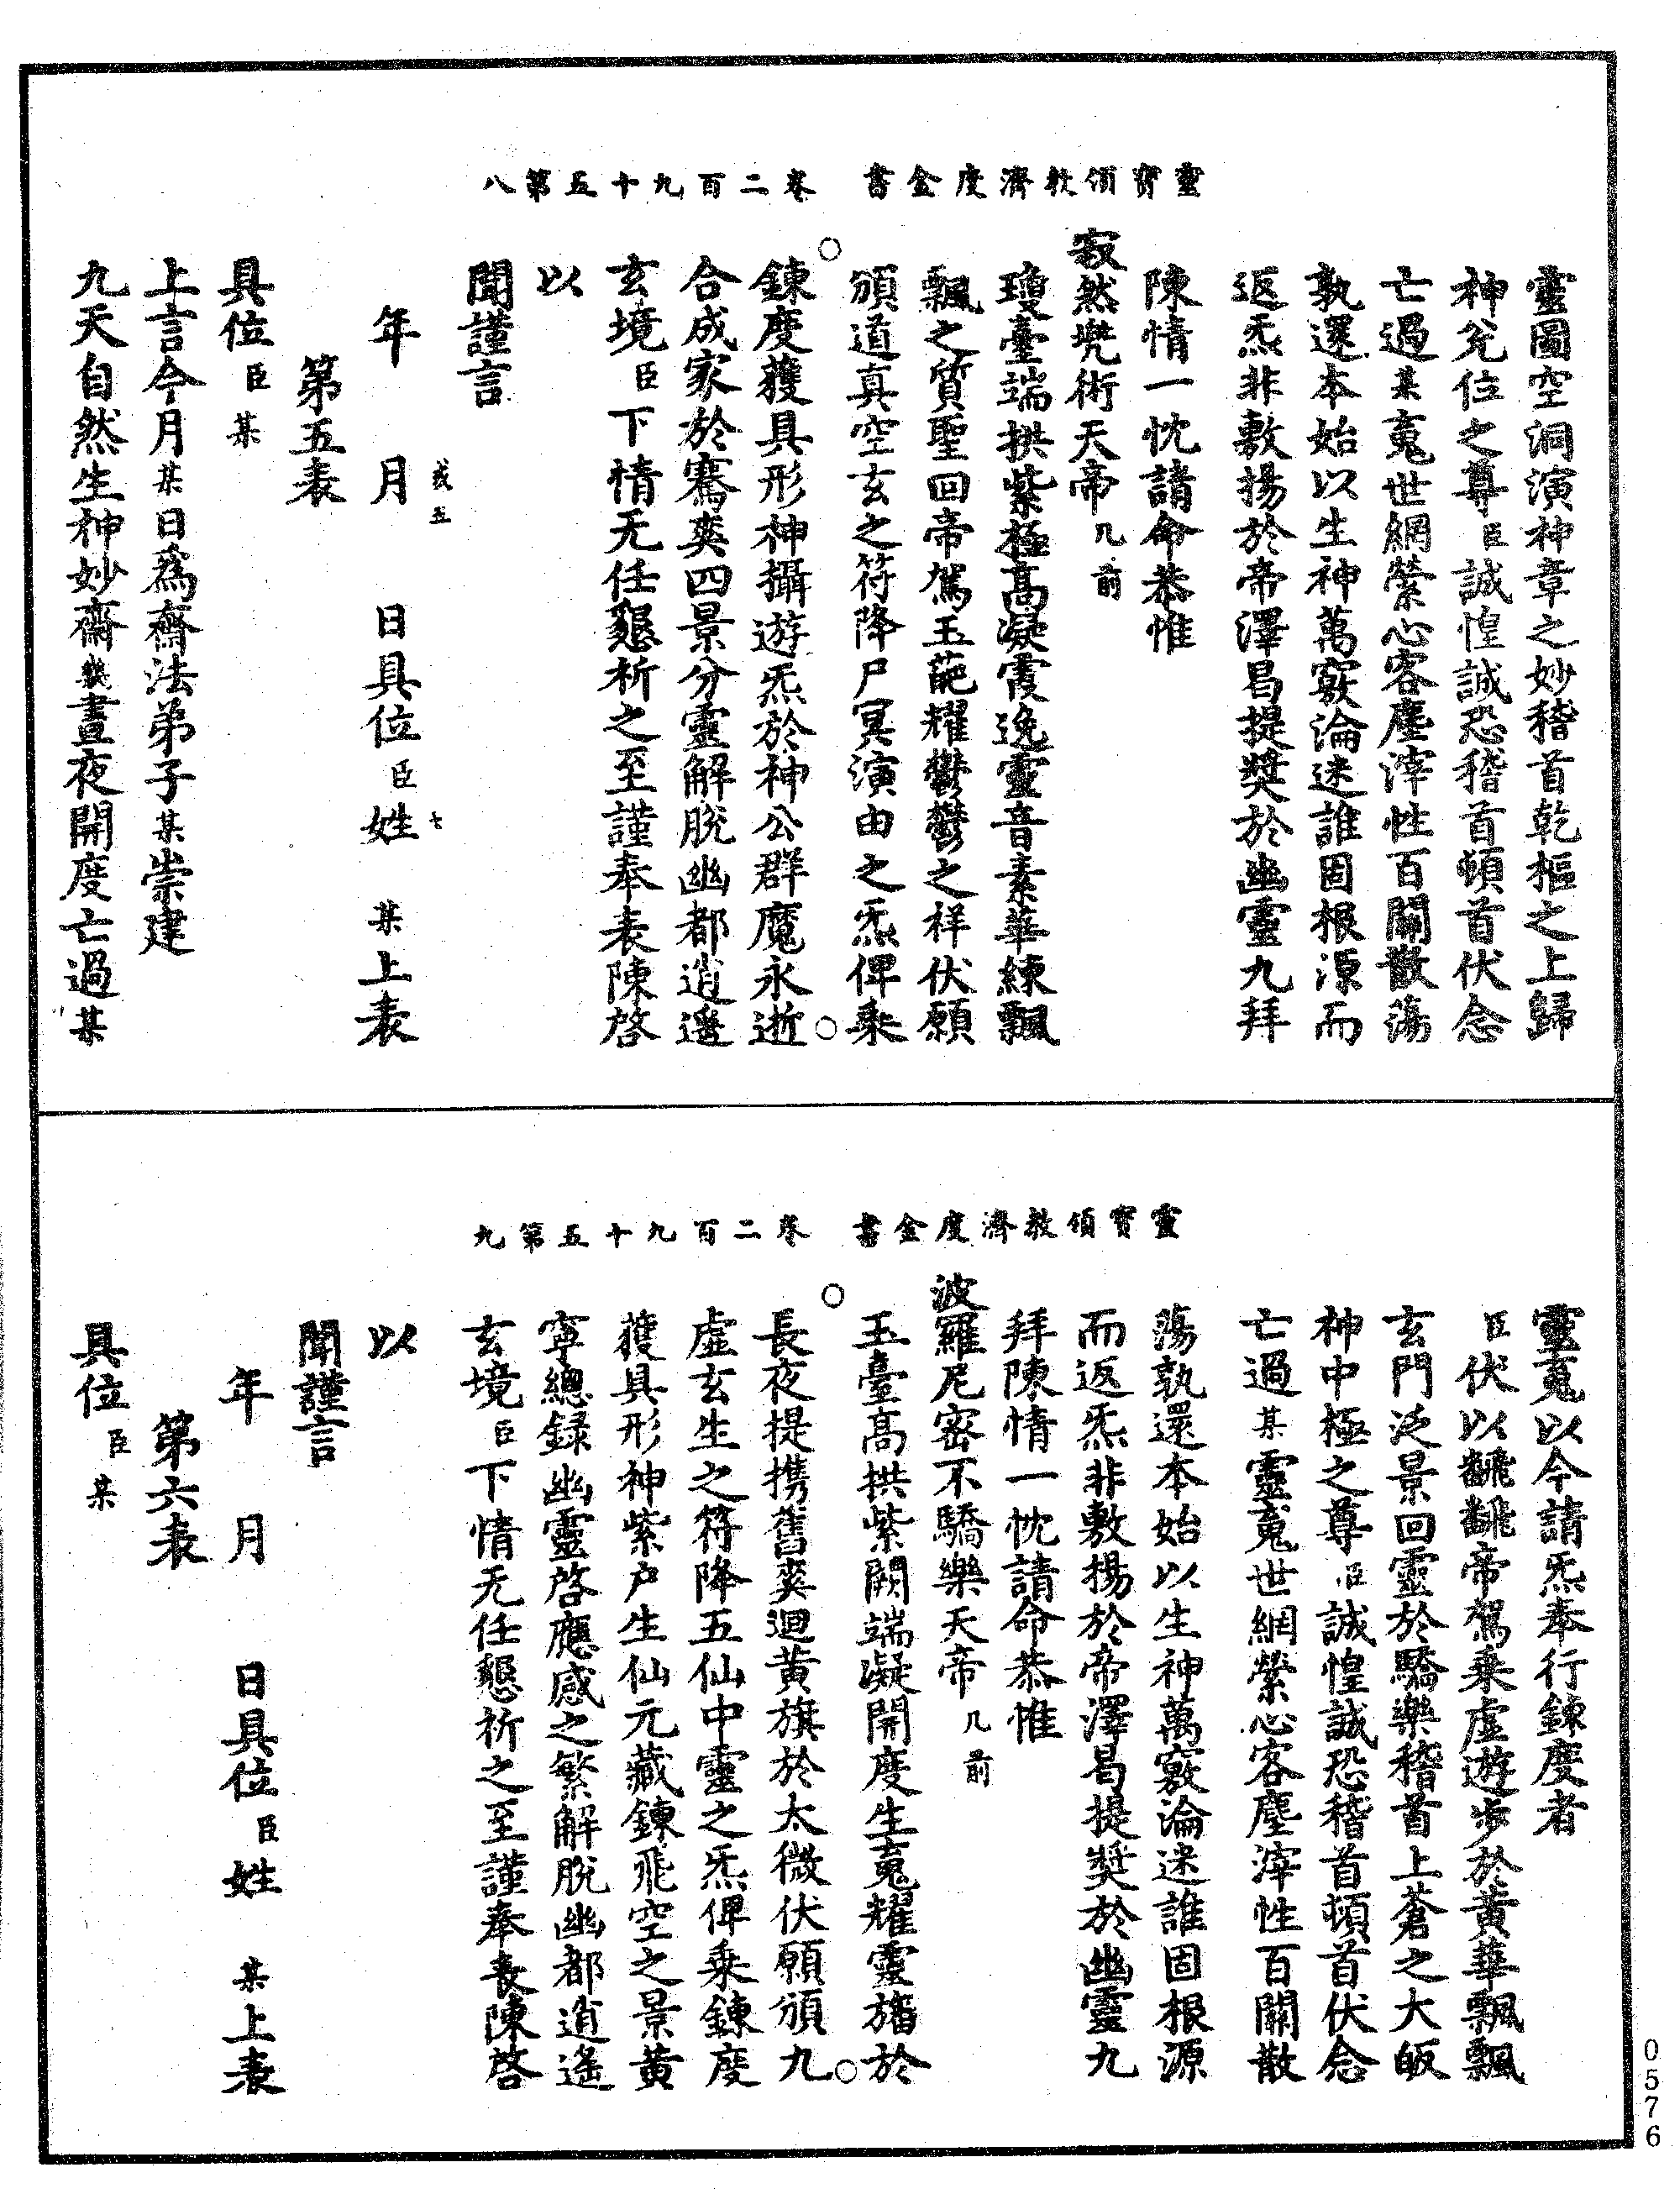 靈寶領教濟度金書 卷二百九十五第八
靈圖空洞演神章之妙稽首乾樞之上歸
神兊位之尊臣誠惶誠恐稽首頓首伏念
亡過某䰟世網縈心客塵滓性百關散蕩
孰還本始以生神萬竅淪迷誰固根源而
返炁非敷揚於帝澤曷提奬於幽靈九拜
陳情一忱請命恭惟
寂然兠術天帝几前
瓊臺端拱紫極高凝霞逸靈音素華練飄
飄之質聖回帝駕玉葩耀鬱鬱之祥伏願
頒道真空玄之符降尸冥演由之炁俾乗
鍊度獲具形神攝遊炁於神公群魔永逝
合成家於騫爽四景分靈解脫幽都逍遥
玄境臣下情无任懇祈之至謹奉表陳啓
以
聞謹言
年 月 日具位臣姓 某上表
戚五 七
第五表
具位臣某
上言今月某日爲齋法弟子某崇建
九天自然生神妙齋幾晝夜開度亡過某
靈寶領教濟度金書 卷二百九十五第九
靈䰟以今請炁奉行鍊度者
臣伏以翻翻帝駕乗虚遊步於黄華飄飄
玄門泛景回靈於驕樂稽首上蒼之大皈
神中極之尊臣誠惶誠恐稽首頓首伏念
亡過某靈䰟世網縈心客塵滓性百關散
蕩孰還本始以生神萬竅淪迷誰固根源
而返炁非敷揚於帝澤曷提奬於幽靈九
拜陳情一忱請命恭惟
波羅尼宻不驕樂天帝几前
玉臺高拱紫闕端凝開度生䰟耀靈旛於
長夜提携舊爽迴黄旗於太微伏願頒九
虚玄生之符降五仙中靈之炁俾乗鍊度
獲具形神紫户生仙元藏鍊飛空之景黄
寧總録幽靈啓應感之繁解脫幽都逍遥
玄境臣下情无任懇祈之至謹奉表陳啓
以
聞謹言
年 月 日具位臣姓 某上表
第六表
具位臣某
0576